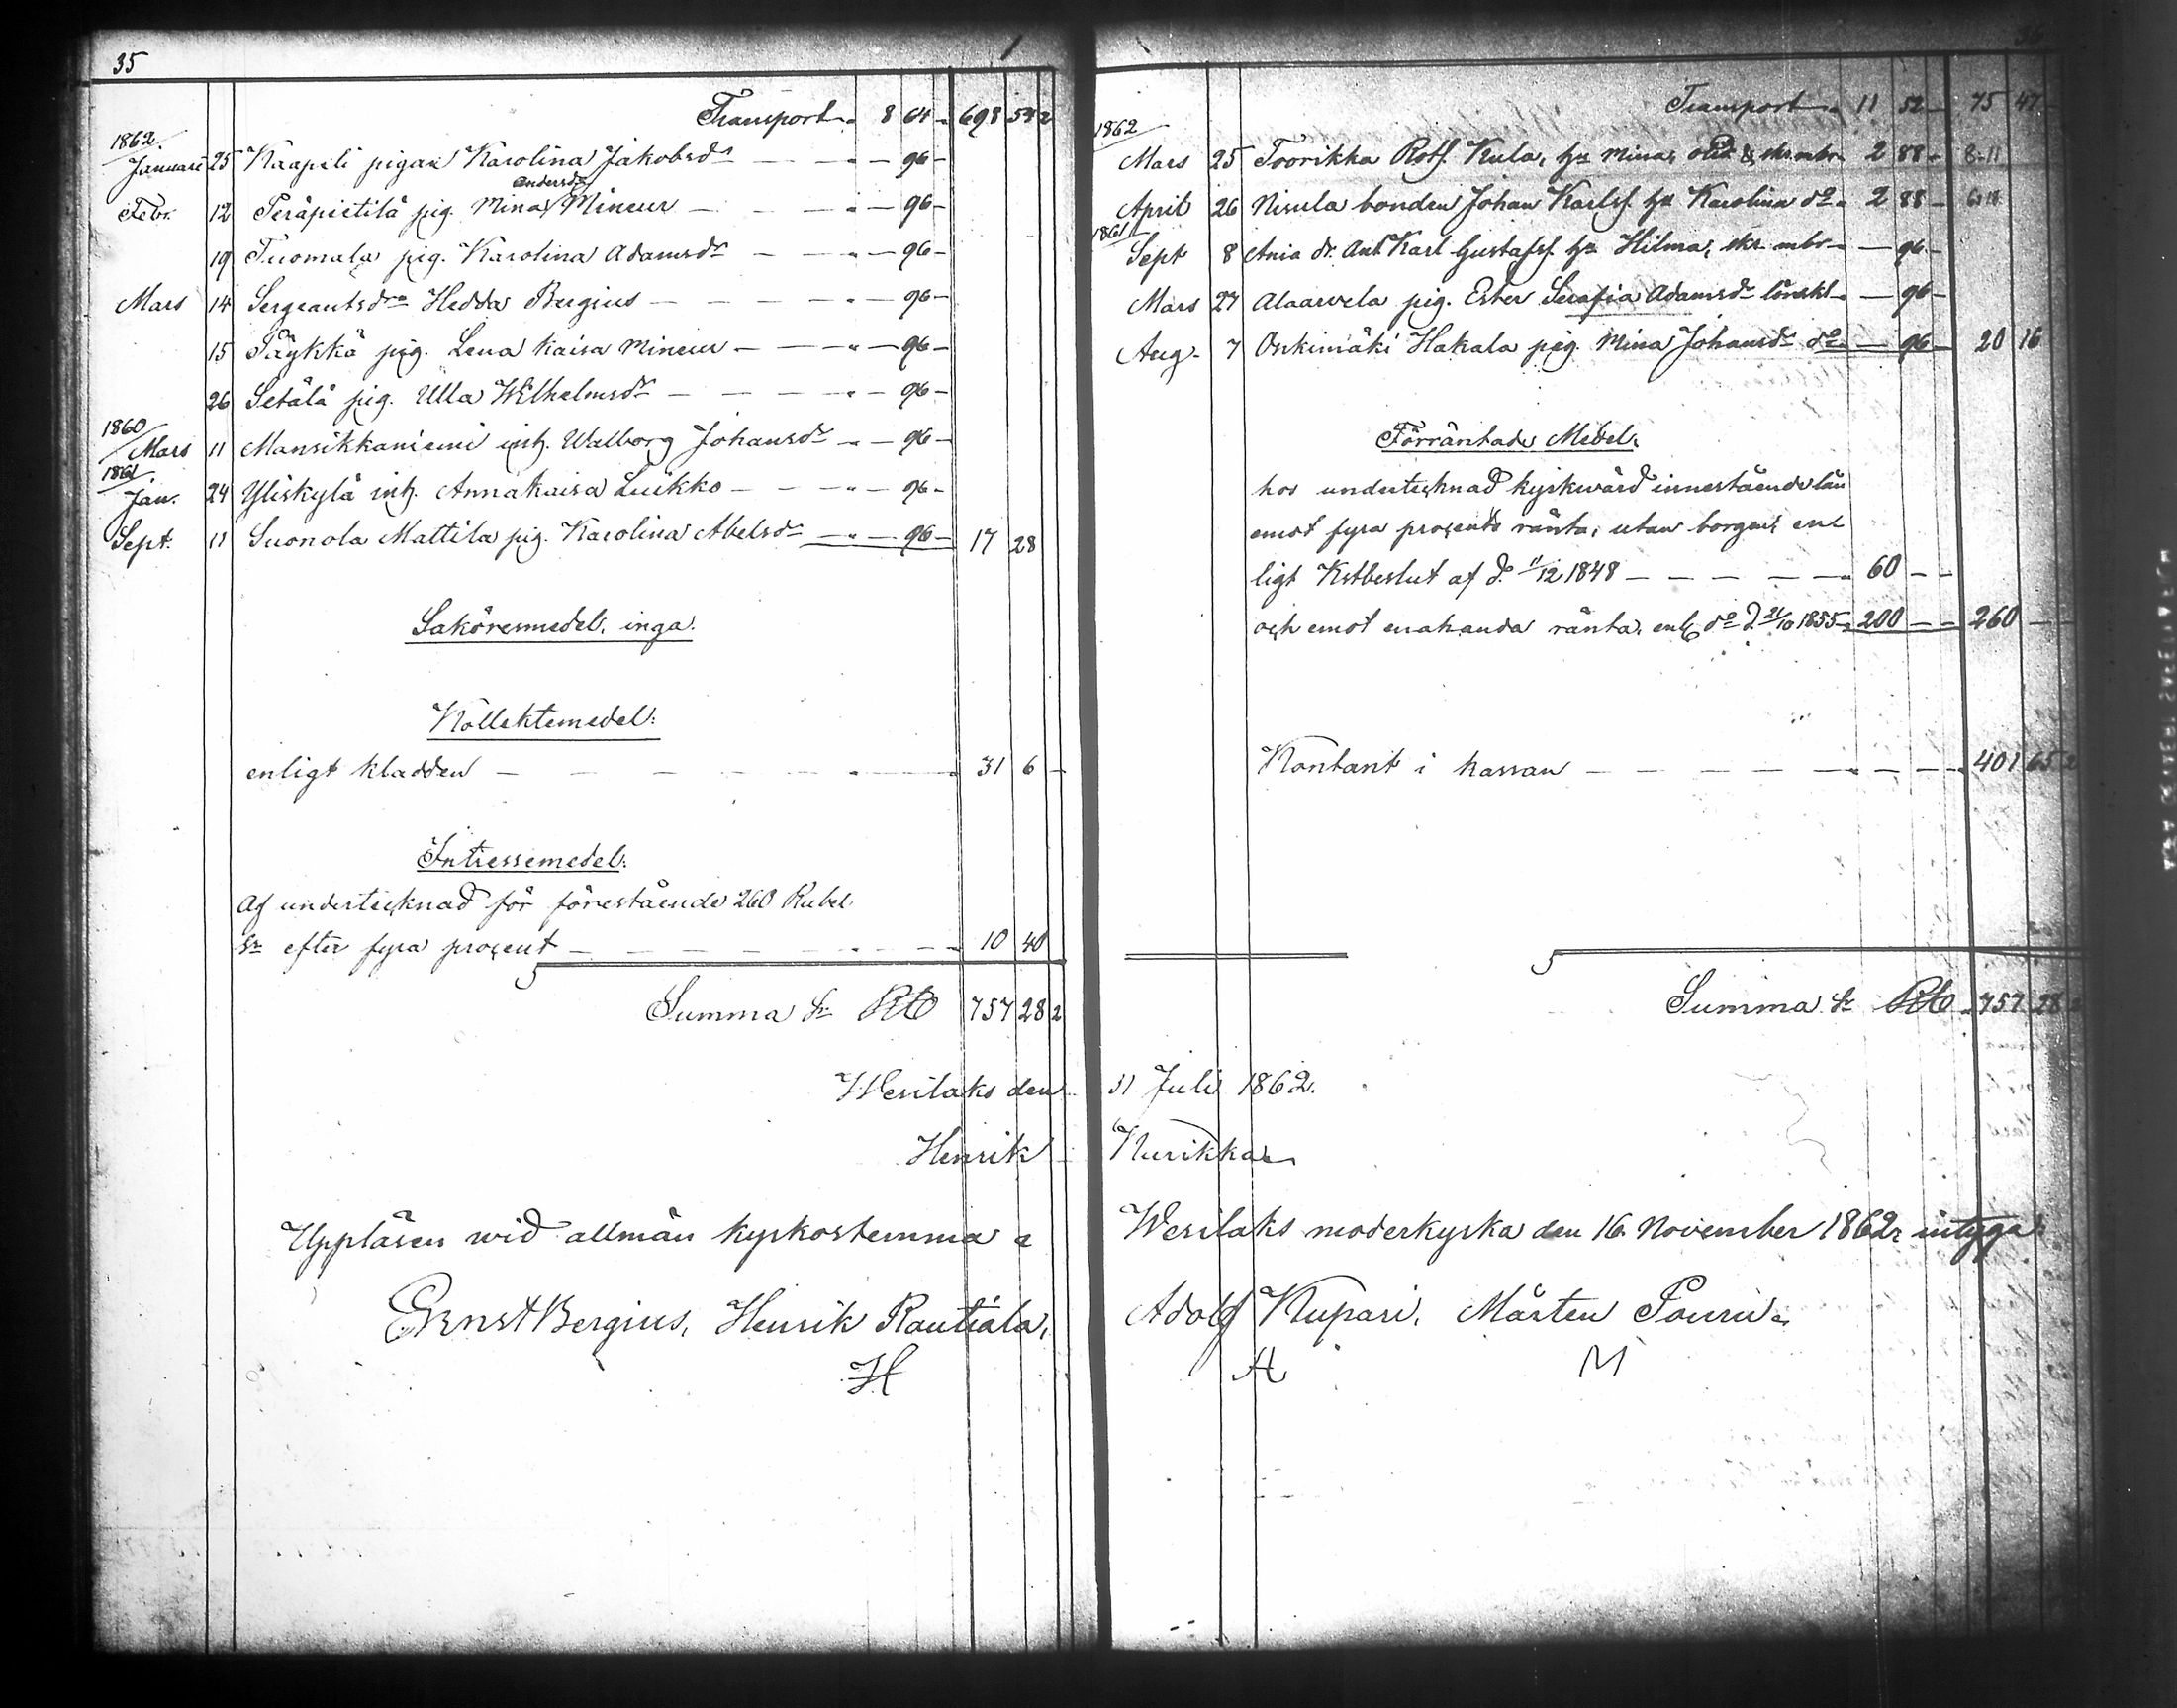 35
Transport „ 8 64 „ 698 53 2
1862.
Januari 25 Kaapeli pigan Karolina Jakobsdr — — „ — 96 —
Andersdr
Febr. 12 Peräpietilä pig. Mina Mineur — — „ — 96 —
19 Tuomala pig. Karolina Adamsdr — — „ — 96 —
Mars 14 Sergeantsdrn Hedda Bergius — — — „ — 96 —
15 Päykkä pig. Lena Kaisa Mineur — — „ — 96 —
26 Setälä pig. Ulla Wilhelmsdr — — — „ — 96 —
1860
Mars 11 Mansikkaniemi inh. Walborg Johansdr „ — 96 —
1861
Jan. 24 Yliskylä inh. Annakaisa Luikko — — „ — 96 —
Sept. 11 Suonola Mattila pig. Karolina Abelsdr — „ — 96 — 17 28
Saköresmedel. inga.
Kollektemedel:
enligt kladden — — — — — — „ 31 6 —
Intressemedel:
Af undertecknad för förestående 260 Rubel
Sr efter fyra procent — — — — — „ 10 40
Summa Sr Rb 757 28 2
Transport „ 11 52 — 75 47 —
1862
Mars 25 Toorikka Rotf. Kula, hu Mina, & skr. mbr „ 2 88 — 8.11
April 26 Nisula bonden Johan Karlsf. hu Karolina do „ 2 88 —
1861
Sept 8 Ania dr. Ant. Karl Gustafsf. hu Hilma, skr. mbr „ — 96 —
Mars 27 Alaarvela pig. Ester Serafia Adamsdr lönskl. „ — 96 —
Aug. 7 Onkimäki Hakala pig. Mina Johansdr do „ — 96 — 20 16
Förräntade Medel.
hos undertecknad kyrkwärd innestående lån
emot fyra procents ränta, utan borgen, enl
ligt Kstbeslut af d. 11/12 1848 — — — — „ 60 — —
och emot enahanda ränta, enl. do d. 21/10 1855 „ 200 — — 260 — —
Kontant i kassan — — — — — „ — — „ 401 65 2
Summa Sr Rb „ 757 28 2
Wesilaks den 31 Juli 1862.
Henrik Kurikka
Uppläsen wid allmän kyrkostemma i Wesilaks moderkyrka den 16 November 1862, intyga:
Ernst Bergius, Henrik Rautiala, Adolf Kupari, Mårten Pouru.
H A M